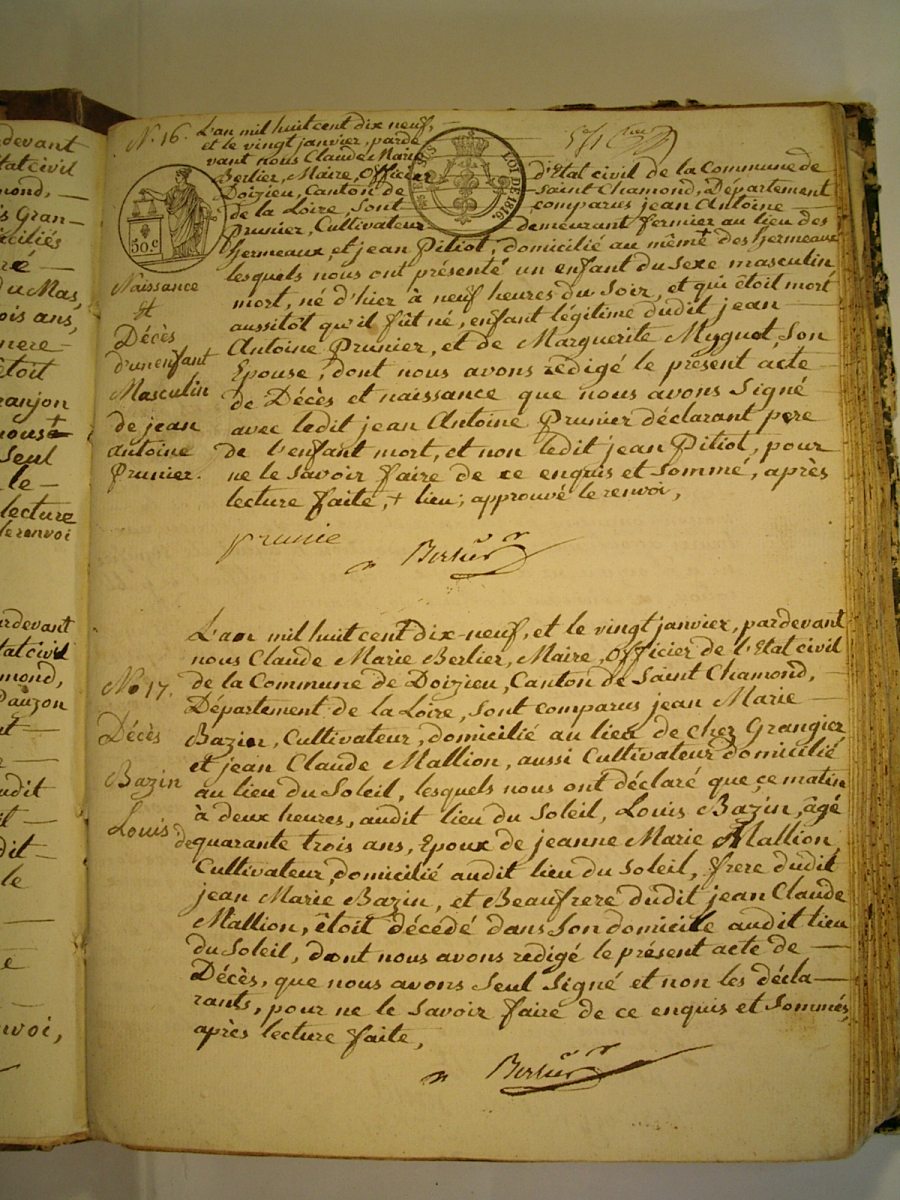 devant
tat civil
mond, —
is Gran-
iciliés
ré —
du Mas,
ois ans,
mere-
étoit
ranjon
nous +
Seul
le —
lecture
le renvoi
ardevant
tat civil
mond,
Dauzon
nt —
audit
il —
dit —
le
e
nvoi,
N.º 16.
50.c
LOI DE 1816
Naissance
et
Décès
d'un enfant
Masculin
de jean
antoine
Prunier.
L'an mil huit cent dix neuf, —
et le vingt janvier, parde
vant nous Claude Marie
Berlier, Maire, Officier d'Etat civil de la Commune de
Doizieu, Canton de — Saint Chamond, Département
de la Loire, Sont comparus jean Antoine —
Prunier, Cultivateur — demeurant fermier au lieu des
hermeaux, et jean Pitiot, domicilié au même + des hermeaux
lesquels nous ont présenté un enfant du Sexe masculin
mort, né d'hier à neuf heures du Soir, et qui étoit mort
aussitôt qu'il fût né, enfant légitime dudit jean —
Antoine Prunier, et de Marguerite Mygnot, Son
Epouse, dont nous avons redigé le présent acte —
de Décès et naissance que nous avons Signé
avec ledit jean Antoine Prunier déclarant pere
de l'enfant mort, et non ledit jean Pitiot, pour
ne le Savoir faire de ce enquis et Sommé, après
lecture faite, + lieu; approuvé le renvoi,
prunie
Berlier
N.º 17.
Décès
de
Bazin
Louis
L'an mil huit cent dix-neuf, et le vingt janvier, pardevant
nous Claude Marie Berlier, Maire, Officier de l'Etat civil
de la Commune de Doizieu, Canton de Saint Chamond, —
Département de la Loire, Sont comparus jean Marie —
Bazin, Cultivateur, domicilié au lieu de chez Grangier
et jean Claude Mallion, aussi Cultivateur domicilié
au lieu du Soleil, lesquels nous ont déclaré que ce matin
à deux heures, audit lieu du Soleil, Louis Bazin, âgé
quarante trois ans, Epoux de jeanne Marie Mallion
Cultivateur, domicilié audit lieu du Soleil, frere dudit
jean Marie Bazin, et Beaufrere dudit jean Claude
Mallion, étoit décédé dans Son domicile audit lieu
du Soleil, dont nous avons redigé le présent acte de —
Décès, que nous avons Seul Signé et non les décla-
rants, pour ne le Savoir faire de ce enquis et Sommés,
après lecture faite,
Berlier